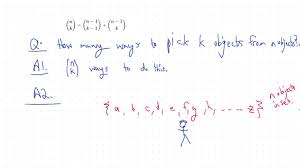 (n k) = (n-1 k-1) + (n-1 k)
Q: How many ways to pick k objects from n objects?
A1. (n k) ways to do this.
A2.
{ a, b, c, d, e, f, g, h, ..... z }
n objects
in set.